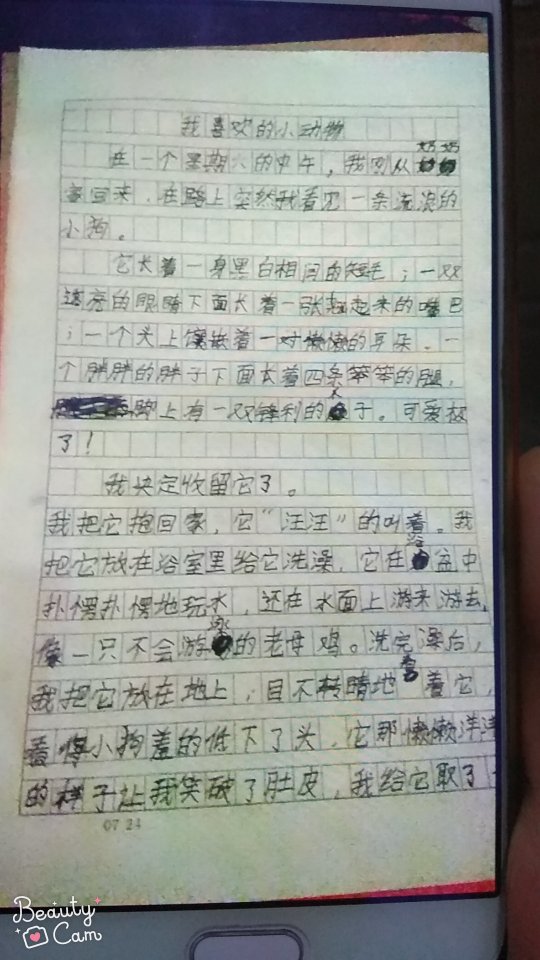 我喜欢的小动物
在一个星期六的中午，我刚从奶奶
家回来，在路上突然我看见一条流浪的
小狗。
它长着一身黑白相间的短毛；一双
透亮的眼睛下面长着一张翘起来的嘴巴
；一个头上镶嵌着一对懒懒的耳朵、一
个胖胖的胖子下面长着四条笨笨的腿，
脚上有一双锋利的爪子。可爱极
了！
我决定收留它了。
我把它抱回家，它“汪汪”的叫着。我
把它放在浴室里给它洗澡，它在浴盆中
扑愣扑愣地玩水，还在水面上游来游去，
像一只不会游泳的老母鸡。洗完澡后，
我把它放在地上，目不转睛地看着它，
看得小狗羞的低下了头，它那懒懒洋洋
的样子让我笑破了肚皮，我给它取了
07 24
Beauty
Cam